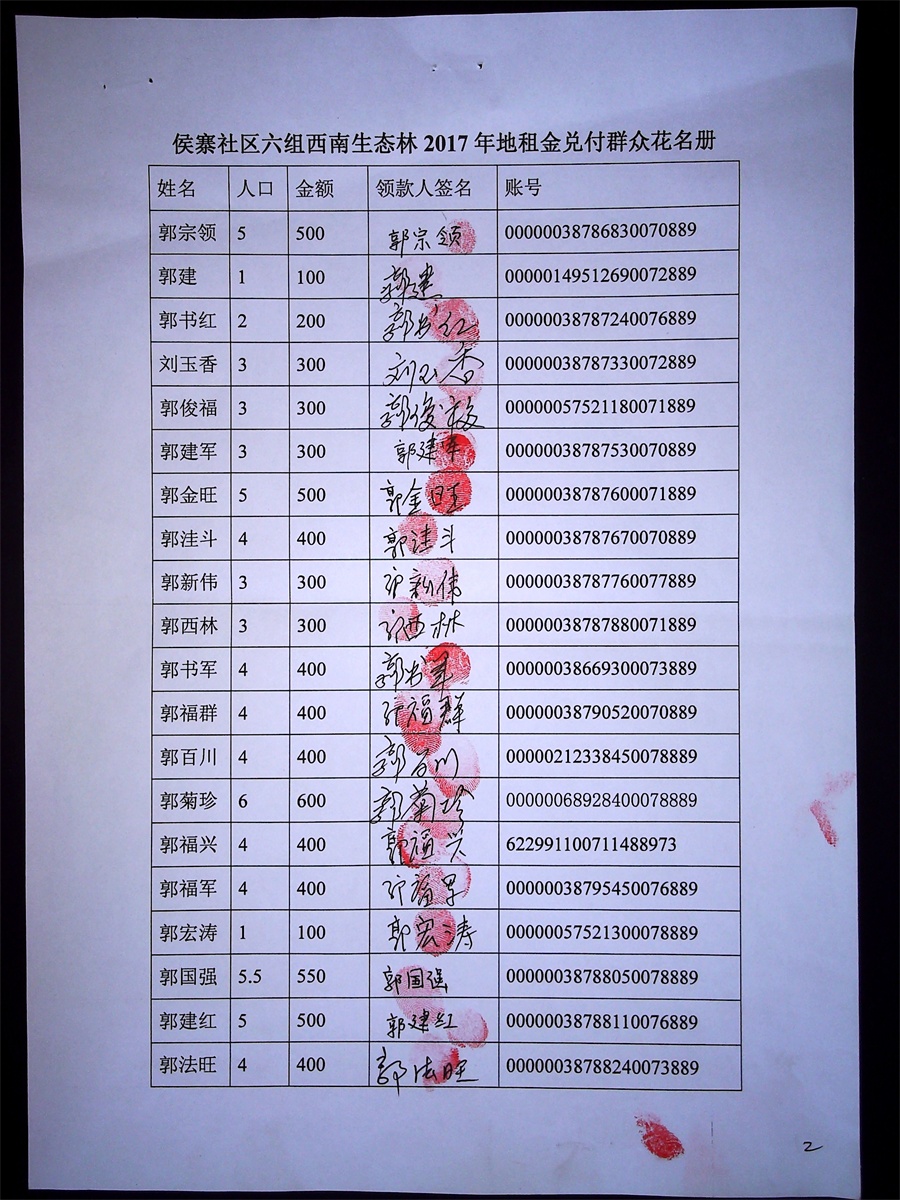 侯寨社区六组西南生态林 2017 年地租金兑付群众花名册
姓名 人口 金额 领款人签名 账号
郭宗领 5 500 郭宗领 00000038786830070889
郭建 1 100 郭建 00000149512690072889
郭书红 2 200 郭书红 00000038787240076889
刘玉香 3 300 刘玉香 00000038787330072889
郭俊福 3 300 郭俊 00000057521180071889
郭建军 3 300 郭建军 00000038787530070889
郭金旺 5 500 郭金旺 00000038787600071889
郭洼斗 4 400 郭洼斗 00000038787670070889
郭新伟 3 300 郭新伟 00000038787760077889
郭西林 3 300 郭西林 00000038787880071889
郭书军 4 400 郭书军 00000038669300073889
郭福群 4 400 福群 00000038790520070889
郭百川 4 400 郭百川 00000212338450078889
郭菊珍 6 600 郭菊珍 00000068928400078889
郭福兴 4 400 郭福兴 622991100711488973
郭福军 4 400 郭福军 00000038795450076889
郭宏涛 1 100 郭宏涛 00000057521300078889
郭国强 5.5 550 郭国强 00000038788050078889
郭建红 5 500 郭建红 00000038788110076889
郭法旺 4 400 郭法旺 00000038788240073889
2